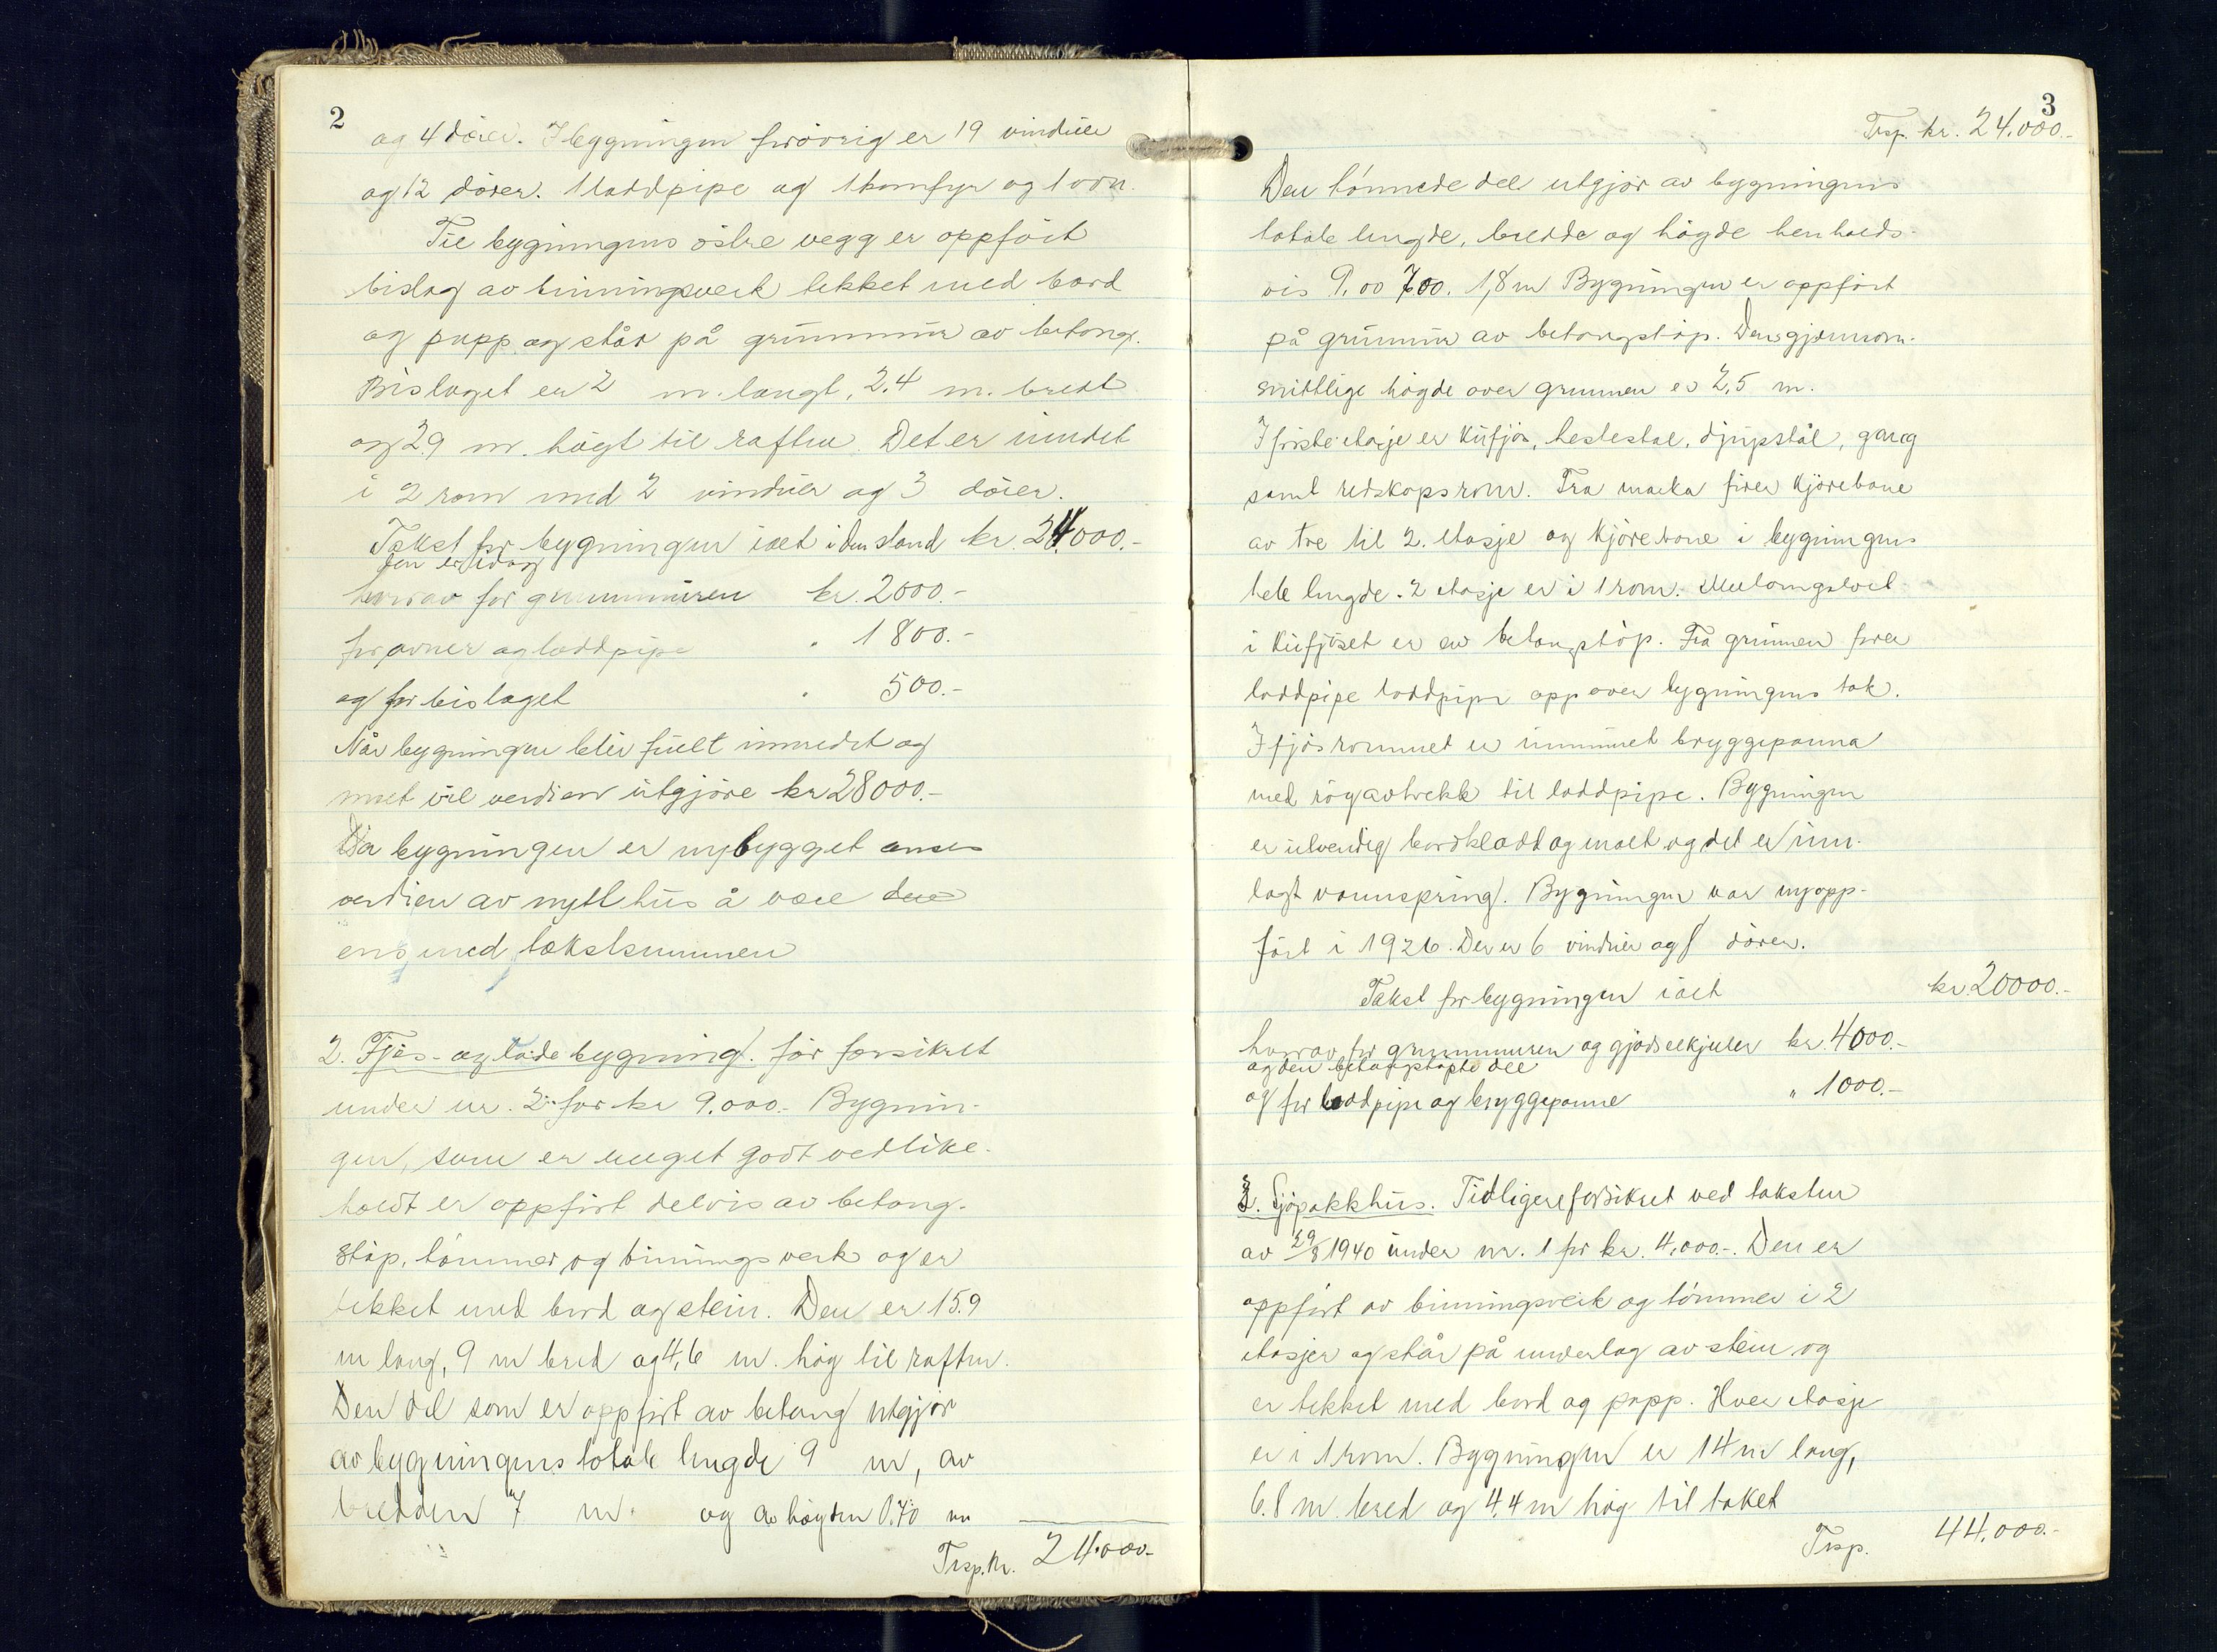 2
og 4 dører. I bygningen forøvrig er 19 vinduer
og 12 dører. 1 loddpipe og 1 komfyr og 1 ovn.
Til bygningens østre vegg er oppført
bislag av binningsverk tekket med bord
og papp og står på grunnmur av betong.
Bislaget er 2 m. langt, 2.4 m. bredt
og 2.9 m. høgt til raften. Det er inndelt
i 2 rom med 2 vinduer og 3 dører.
Takst for bygningen ialt i den stand kr. 24000.-
den er idag
herav for grunnmuren kr. 2000.-
for ovner og loddpipe " 1800.-
og for bislaget " 500.-
Når bygningen blir fullt innredet og
malt vil verdien utgjøre kr 28000.-
Da bygningen er nybygget anses
verdien av nytt hus å være den
ens med takstsummen
2. Fjøs- og ladebygning. før forsikret
under nr. 2 for kr 9.000.- Bygnin-
gen, som er meget godt vedlike-
holdt er oppført delvis av betong-
støp, tømmer og binningsverk og er
tekket med bord og stein. Den er 15.9
m lang, 9 m bred og 4,6 m. høg til raften.
Den del som er oppført av betong utgjør
av bygningens totale lengde 9 m, av
bredden 7 m. og av høgden 0.70 m
Trsp. kr. 24.000.-
3
Trsp. kr. 24.000.-
Den tømrede del utgjør av bygningens
totale lengde, bredde og høgde henholds-
vis 9.00 7.00. 1,8 m Bygningen er oppført
på grunnmur av betongstøp. Dens gjennom-
snittlige høgde over grunnen er 2,5 m.
I første etasje er kufjøs, hestestal, djupstal, gang
samt redskapsrom. Fra marka fører kjørebane
av tre til 2. etasje og kjørebane i bygningens
hele lengde. 2 etasje er i 1 rom.
i kufjøset er av betongstøp. Fra grunnen fører
loddpipe loddpipe opp over bygningens tak.
I fjøsrommet er innmuret bryggepanna
med røgavtrekk til loddpipe. Bygningen
er utvendig bordkledt og malt og det er inn-
lagt vannspring. Bygningen var nyopp-
ført i 1926. Der er 6 vinduer og 8 dører.
Takst for bygningen ialt kr 20000.-
hvorav for grunnmuren og gjødselkjeller kr. 4000.-
og den betongstøpte del
og for loddpipe og bryggepanne " 1000.-
3. Sjøpakkhus. Tidligere forsikret ved taksten
av 29/8 1940 under nr. 1 for kr. 4,000.-. Den er
oppført av binningsverk og tømmer i 2
etasjer og står på underlag av stein og
er tekket med bord og papp. Hver etasje
er i 1 rom. Bygningen er 14 m lang,
6.8 m bred og 4.4 m høg til taket
Trsp. 44.000.-